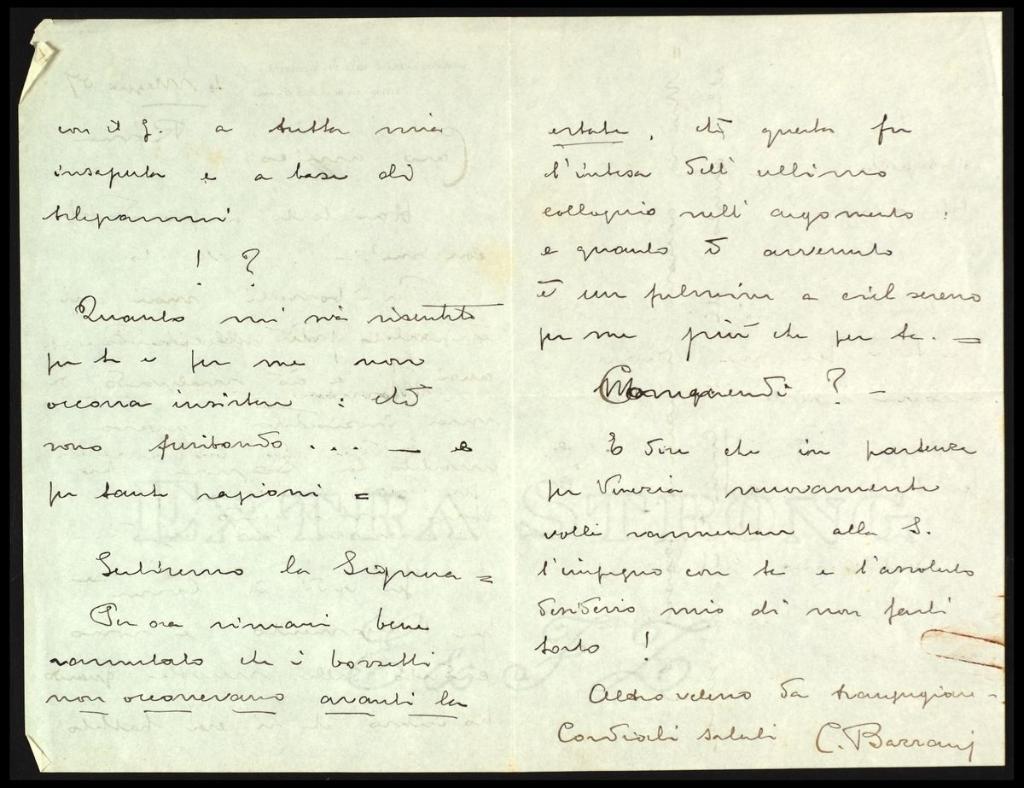 con il G. a tutta mia
insaputa e a base di
telegrammi
! ?
Quanto mi sia risentito
per te e per me! non
occorre insistere: ciò
sono furibondo ... — e
per tante ragioni =
Sentiremo la Signora =
Per ora rimani bene
rammentato che i bozzetti
non occorrevano avanti la
estate, chè questa fu
l'intesa dell'ultimo
colloquio nell'argomento:
e quanto è avvenuto
è un fulmine a ciel sereno
per me più che per te. =
Comprendi? —
E dire che in partenza
per Venezia nuovamente
volli rammentare alla S.
l'impegno con te e l'assoluto
desiderio mio di non farti
torto!
Altro veleno da trangugiare -
Cordiali saluti C. Barrani